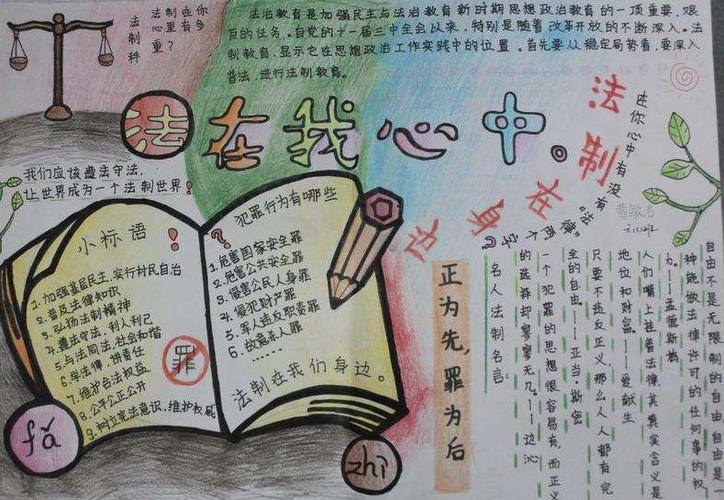 法制科
法制在你
心里有多
重?
法治教育是加强民主与法治教育新时期思想政治教育的一项重要、艰
巨的任务。自党的十一届三中全会以来，特别是随着改革开放的不断深入。法
制教育，显示它在思想政治工作实践中的位置。首先要从稳定局势看，要深入
普法，进行法制教育。
法在我心中。
法制在身边
在你心中有没有“法律”两个字?
我们应该遵法守法，
让世界成为一个法制世界!
小标语!
1.加强基层民主，实行村民自治
2.普及法律知识
3.弘扬法制精神
4.遵法守法，利人利己
5.与法同法，社会和谐
6.学法律，讲责任
7.维护合法权益
8.公平公正公开
9.树立宪法意识，维护权威
罪
?犯罪行为有哪些
1.危害国家安全罪
2.危害公共安全罪
3.侵害公民人身罪
4.侵犯财产罪
5.军人违反职责罪
6.故意杀人罪
……
法制在我们身边。
fǎ
zhì
正为先，罪为后
名人法制名言:
自由不是无限制的自由，自由是一
种能做法律许可的任何事的权
力。——孟德斯鸠
人们嘴上挂着法律，其真实含义是
地位和财富。——爱献生
只要不违反正义，那么人人都有完
全的自由。——亚当·斯密
一个犯罪的思想很容易有，而正义
的选择却寥寥无几。——边沁